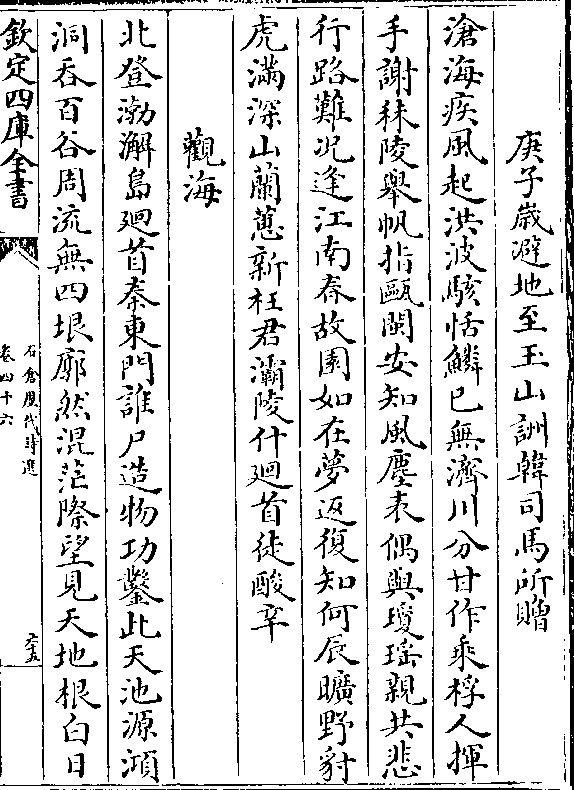 庚子歲避地至玉山詶韓司馬所贈
滄海疾風起洪波駭恬鱗已無濟川分甘作乘桴人揮
手謝秣陵舉帆指甌閩安知風塵表偶與瓊瑤親共悲
行路難况逢江南春故園如在夢返復知何辰曠野豺
虎滿深山蘭蕙新枉君灞陵什廻首徒酸辛
觀海
北登渤澥島廻首秦東門誰尸造物功鑿此天池源澒
洞吞百谷周流無四垠廓然混茫際望見天地根白日
欽定四庫全書
石倉歷代詩選
卷四十六
六五